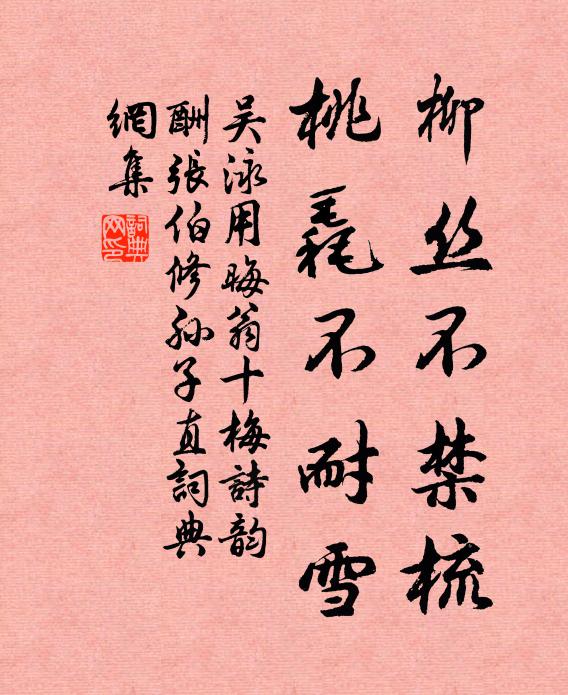 柳丝不禁梳
桃毳不耐雪
吴泳用晦翁十梅詩韵
酬張伯修孙子直詞典
網集
詞典网印